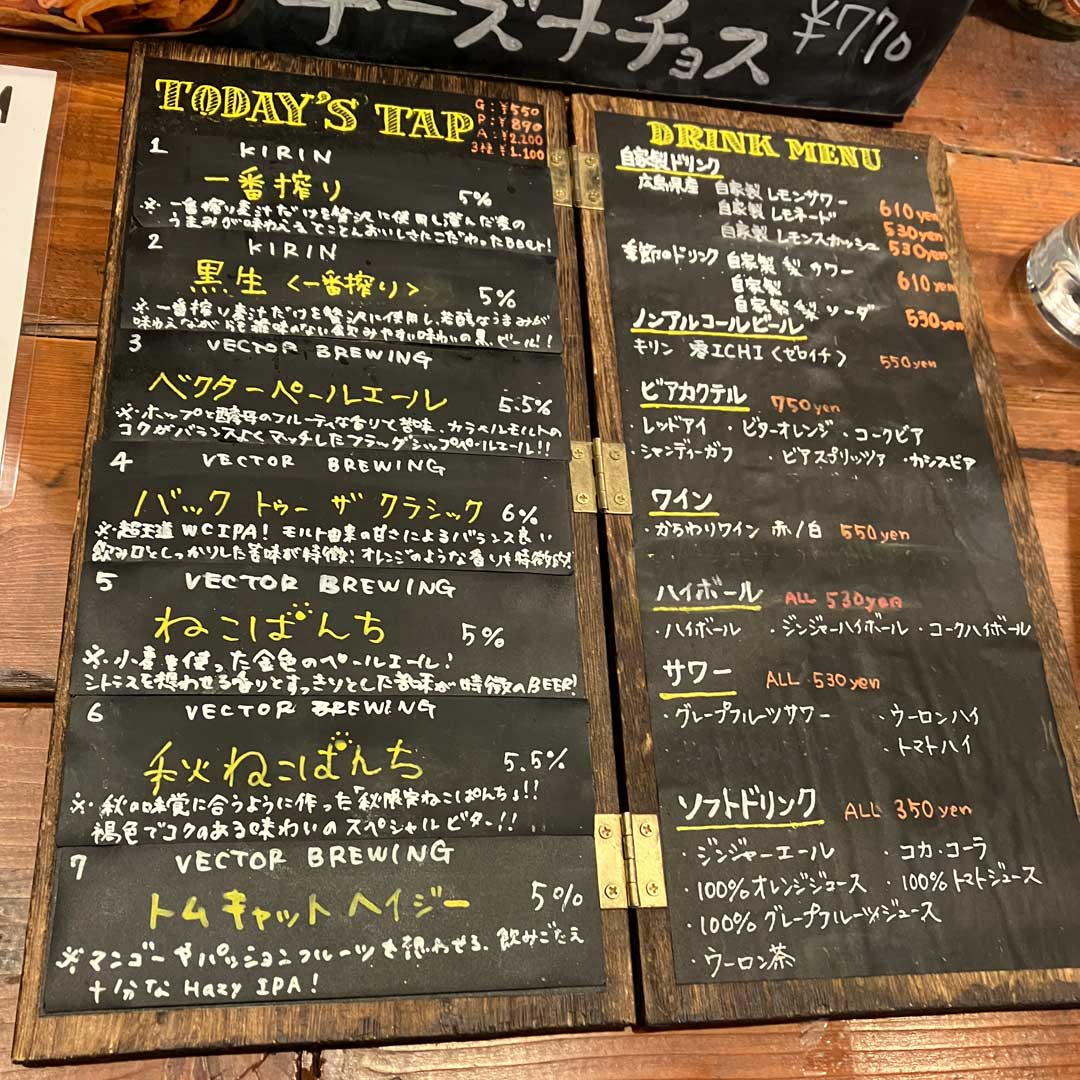 チーズナチョス ¥770
TODAY'S TAP
G:¥550
P:¥890
A:¥2.200
3種¥1.100
1 KIRIN
一番搾り 5%
※一番搾り麦汁だけを贅沢に使用し澄んだ麦の
うまみが味わえてとことんおいしさにこだわったBeer!
2 KIRIN
黒生〈一番搾り〉 5%
※一番搾り麦汁だけを贅沢に使用し、芳醇なうまみが
味わえながらも雑味のない飲みやすい味わいの黒ビール!!
3 VECTOR BREWING
ベクターペールエール 5.5%
※ホップと酵母のフルーティな香りと苦味、カラメルモルトの
コクがバランスよくマッチしたフラッグシップペールエール!!
4 VECTOR BREWING
バック トゥー ザ クラシック 6%
※超王道WCIPA! モルト由来の甘さによるバランス良い
飲み口としっかりした苦味が特徴! オレンジのような香りも特徴的!
5 VECTOR BREWING
ねこぱんち 5%
※小麦を使った金色のペールエール!
シトラスを想わせる香りとすっきりとした苦味が特徴のBEER!
6 VECTOR BREWING
秋ねこぱんち 5.5%
※秋の味覚に合うように作った「秋限定ねこぱんち」!!
褐色でコクのある味わいのスペシャルビター!!
7 VECTOR BREWING
トムキャットヘイジー 5%
※マンゴーやパッションフルーツを想わせる、飲みごたえ
十分なHazy IPA!
DRINK MENU
自家製ドリンク
広島県産 自家製レモンサワー 610yen
自家製レモネード 530yen
自家製レモンスカッシュ 530yen
季節のドリンク 自家製梨サワー 610yen
自家製
自家製梨ソーダ 530yen
ノンアルコールビール
キリン 零ICHI〈ゼロイチ〉 550yen
ビアカクテル 750yen
・レッドアイ ・ビターオレンジ ・コークビア
・シャンディーガフ ・ビアスプリッツァ ・カシスビア
ワイン
・かちわりワイン 赤/白 550yen
ハイボール ALL 530yen
・ハイボール ・ジンジャーハイボール ・コークハイボール
サワー ALL 530yen
・グレープフルーツサワー ・ウーロンハイ
・トマトハイ
ソフトドリンク ALL 350yen
・ジンジャーエール ・コカ・コーラ
・100%オレンジジュース ・100%トマトジュース
・100%グレープフルーツジュース
・ウーロン茶